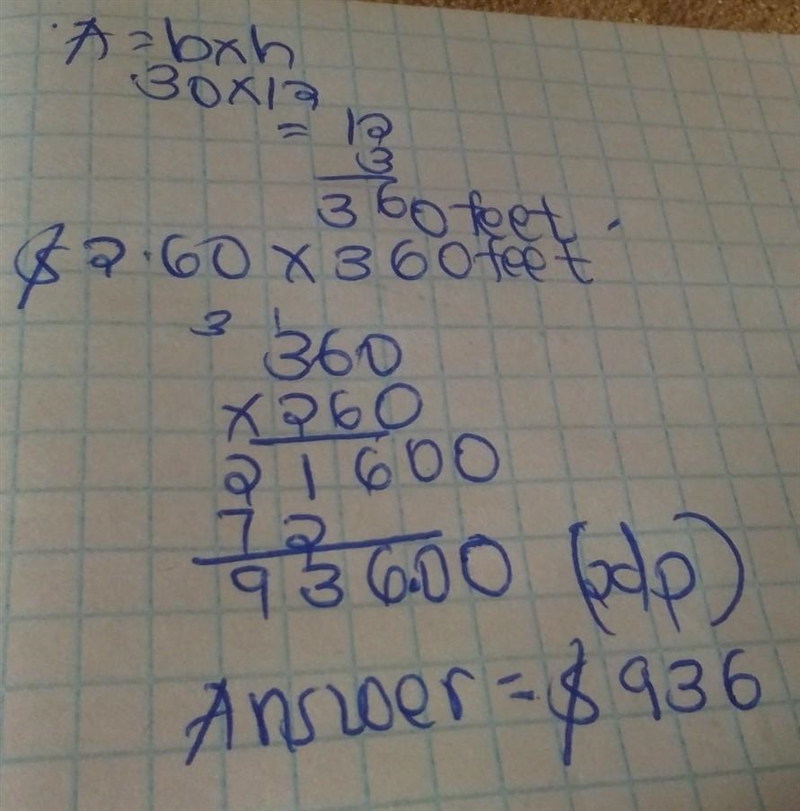 A = bxh
30x12
= 12
3
360 feet.
$2.60 x 360 feet
3 1
360
x260
21600
72
936.00 (2dp)
Answer = $936